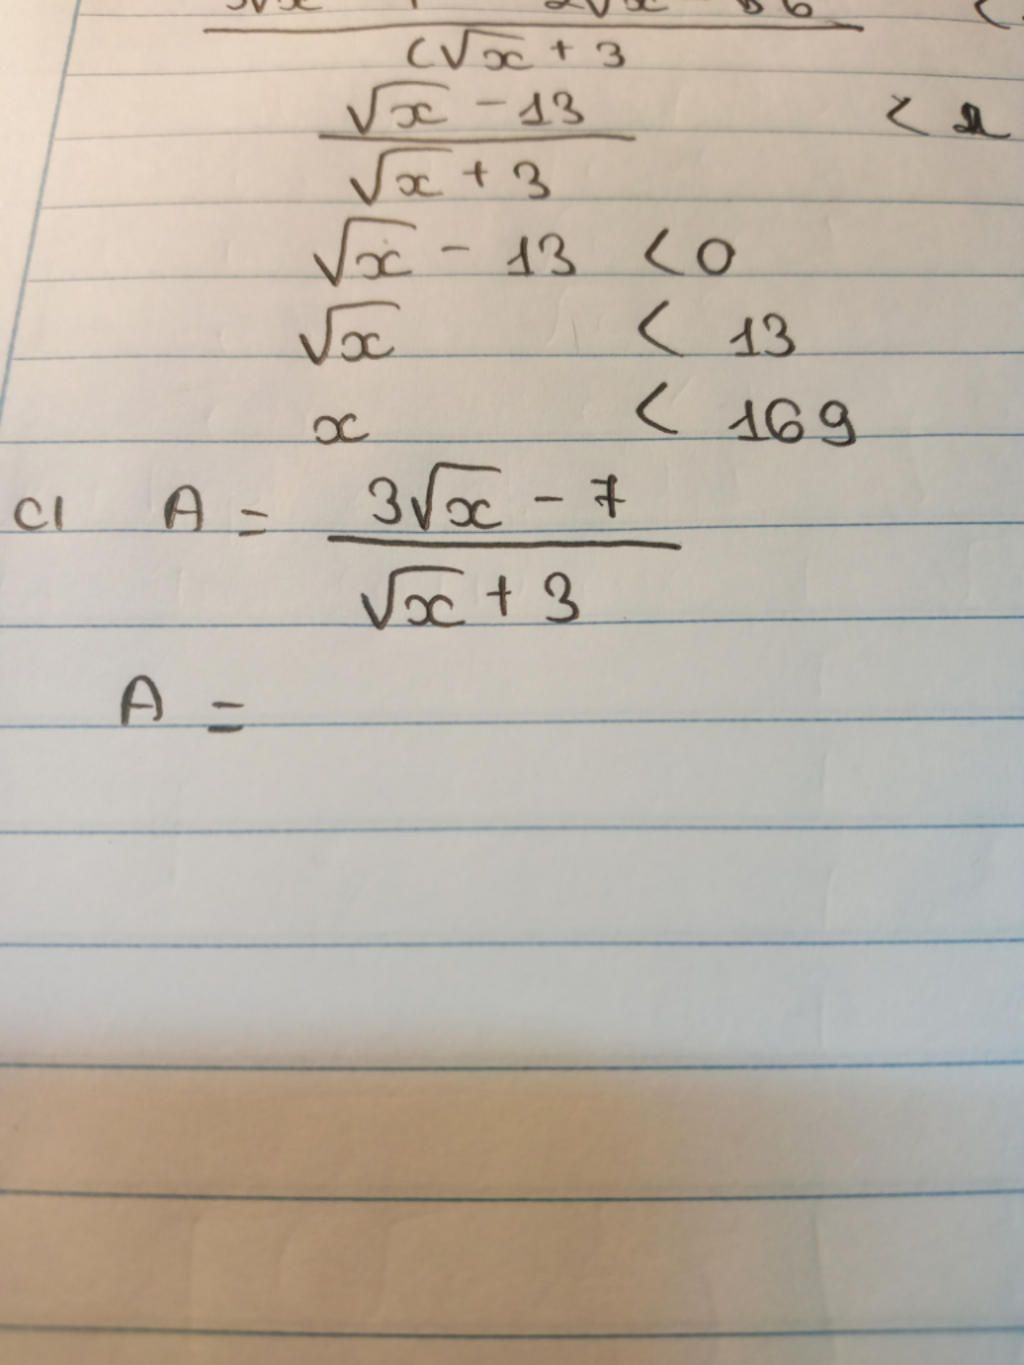 (√x + 3
√x - 13
√x + 3
<
√x - 13 < 0
√x < 13
x < 169
c1 A = 3√x - 7
√x + 3
A =